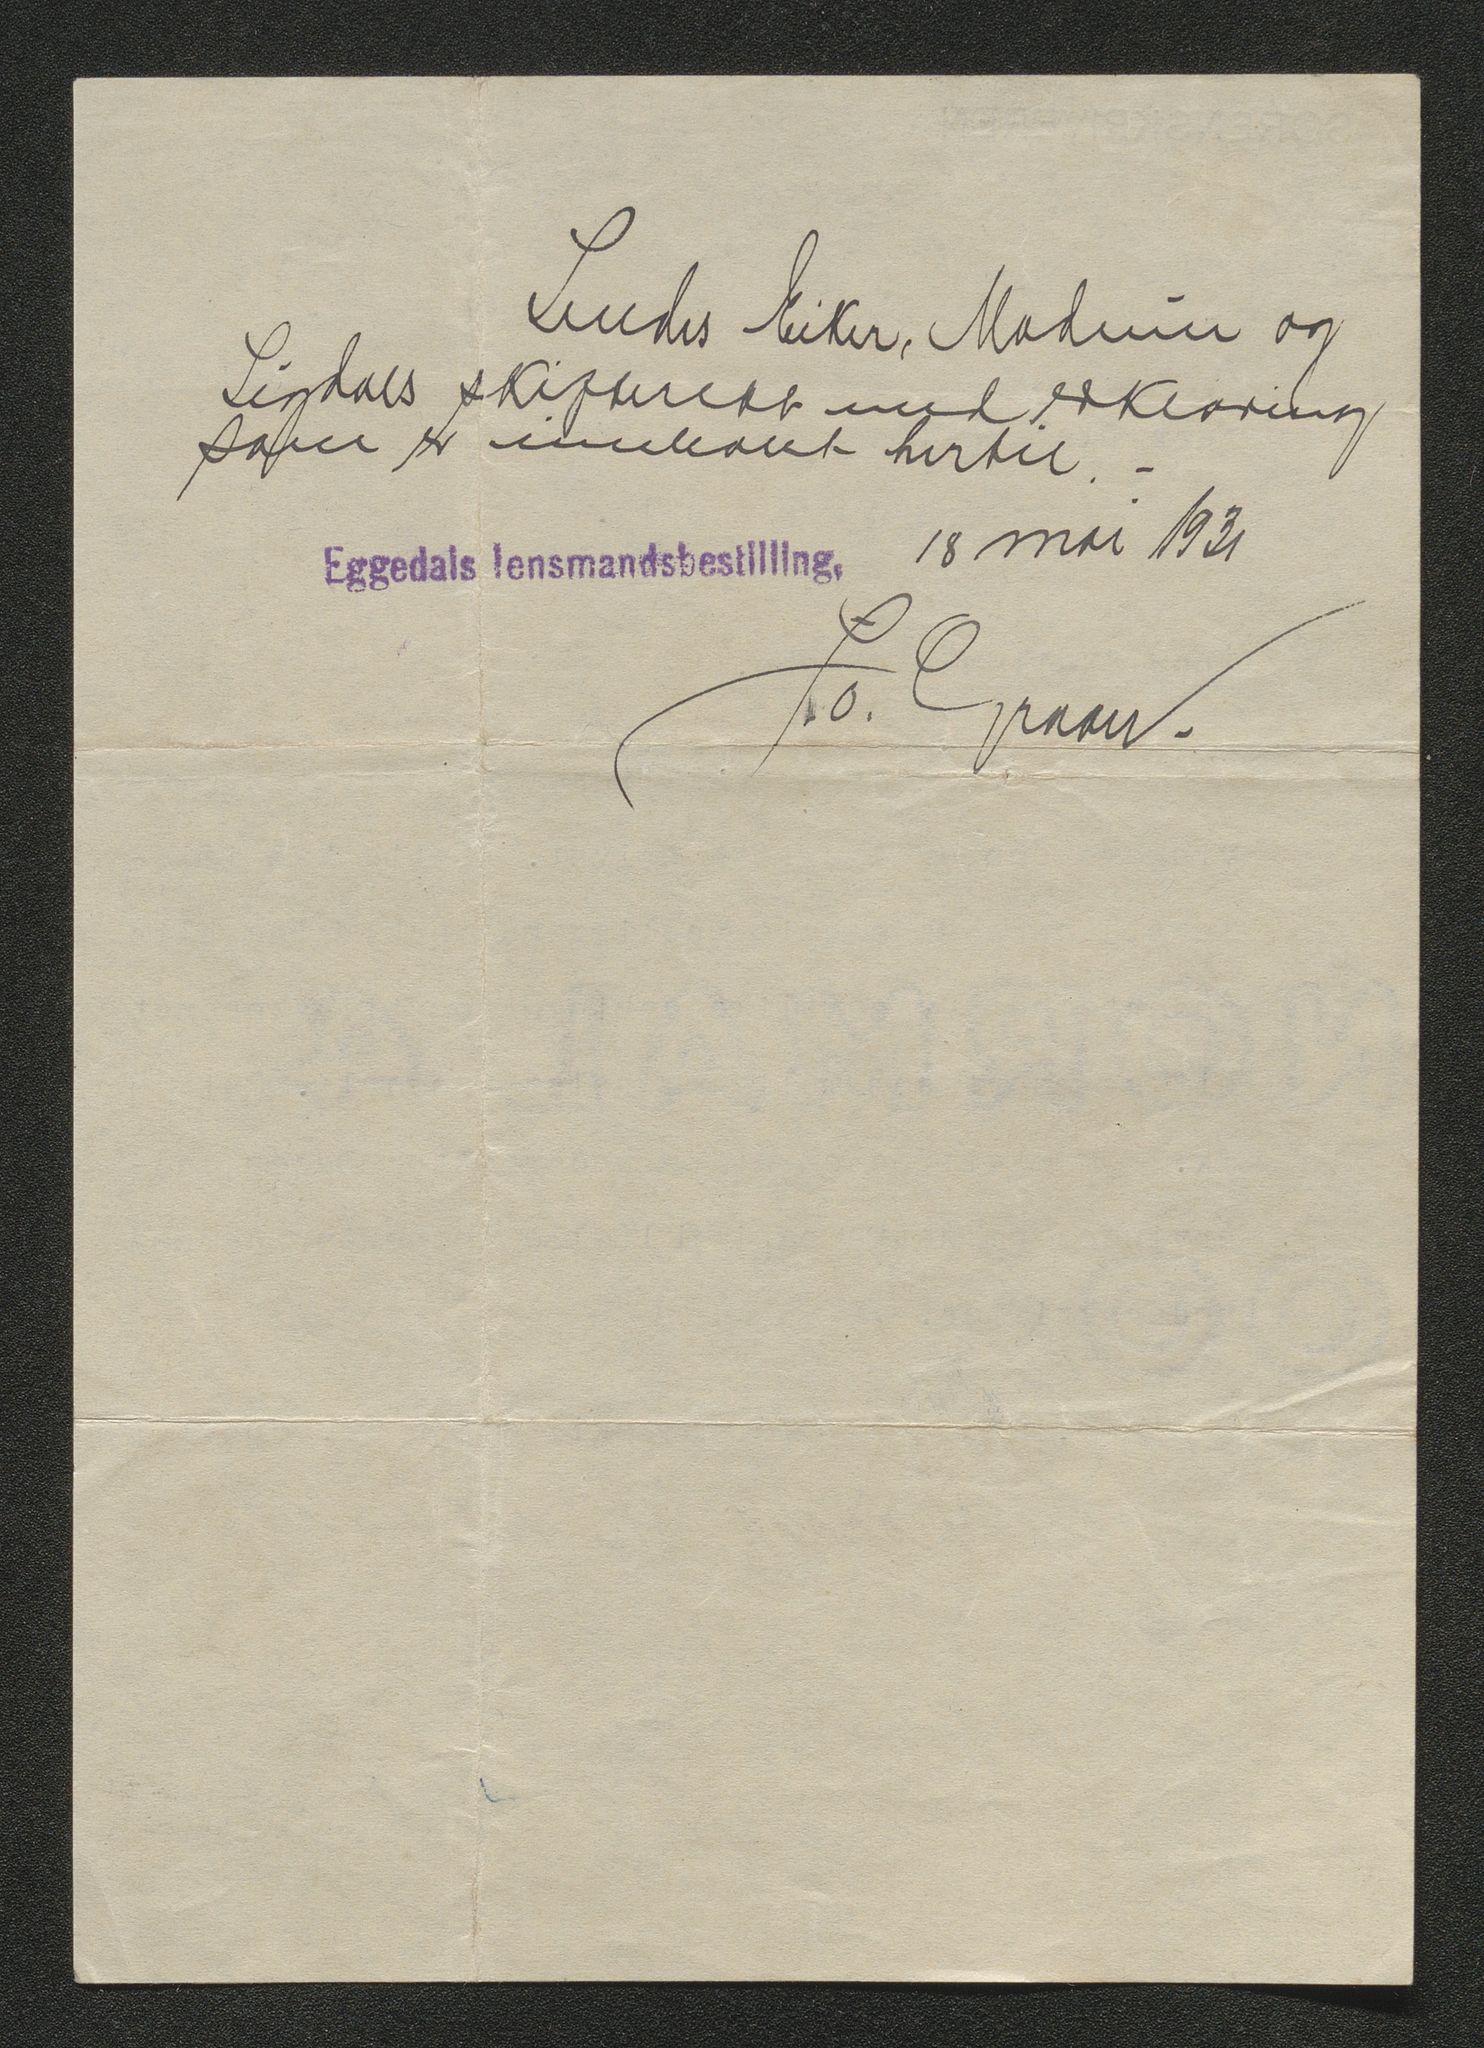 Sendes Eiker, Modum og
Sigdals skifterett med erklæring
som er innhentet hertil. -
Eggedals lensmandsbestilling, 18 mai 1931
Fo. Graau. -